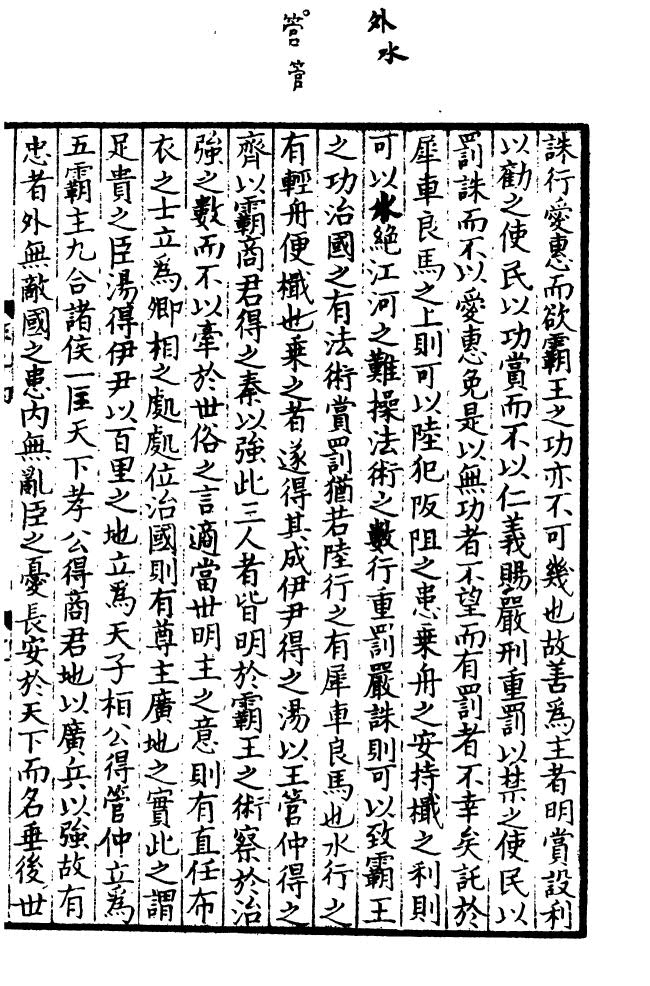 外水
管管
誅行愛惠而欲霸王之功亦不可幾也故善為主者明賞設利
以勸之使民以功賞而不以仁義賜嚴刑重罰以禁之使民以
罰誅而不以愛惠免是以無功者不望而有罰者不幸矣託於
犀車良馬之上則可以陸犯阪阻之患乗舟之安持檝之利則
可以水絶江河之難操法術之數行重罰嚴誅則可以致霸王
之功治國之有法術賞罰猶若陸行之有犀車良馬也水行之
有輕舟便檝也乗之者遂得其成伊尹得之湯以王管仲得之
齊以霸商君得之秦以強此三人者皆明於霸王之術察於治
強之數而不以牽於世俗之言適當世明主之意則有直任布
衣之士立為卿相之處處位治國則有尊主廣地之實此之謂
足貴之臣湯得伊尹以百里之地立為天子桓公得管仲立為
五霸主九合諸侯一匡天下孝公得商君地以廣兵以強故有
忠者外無敵國之患内無亂臣之憂長安於天下而名垂後世